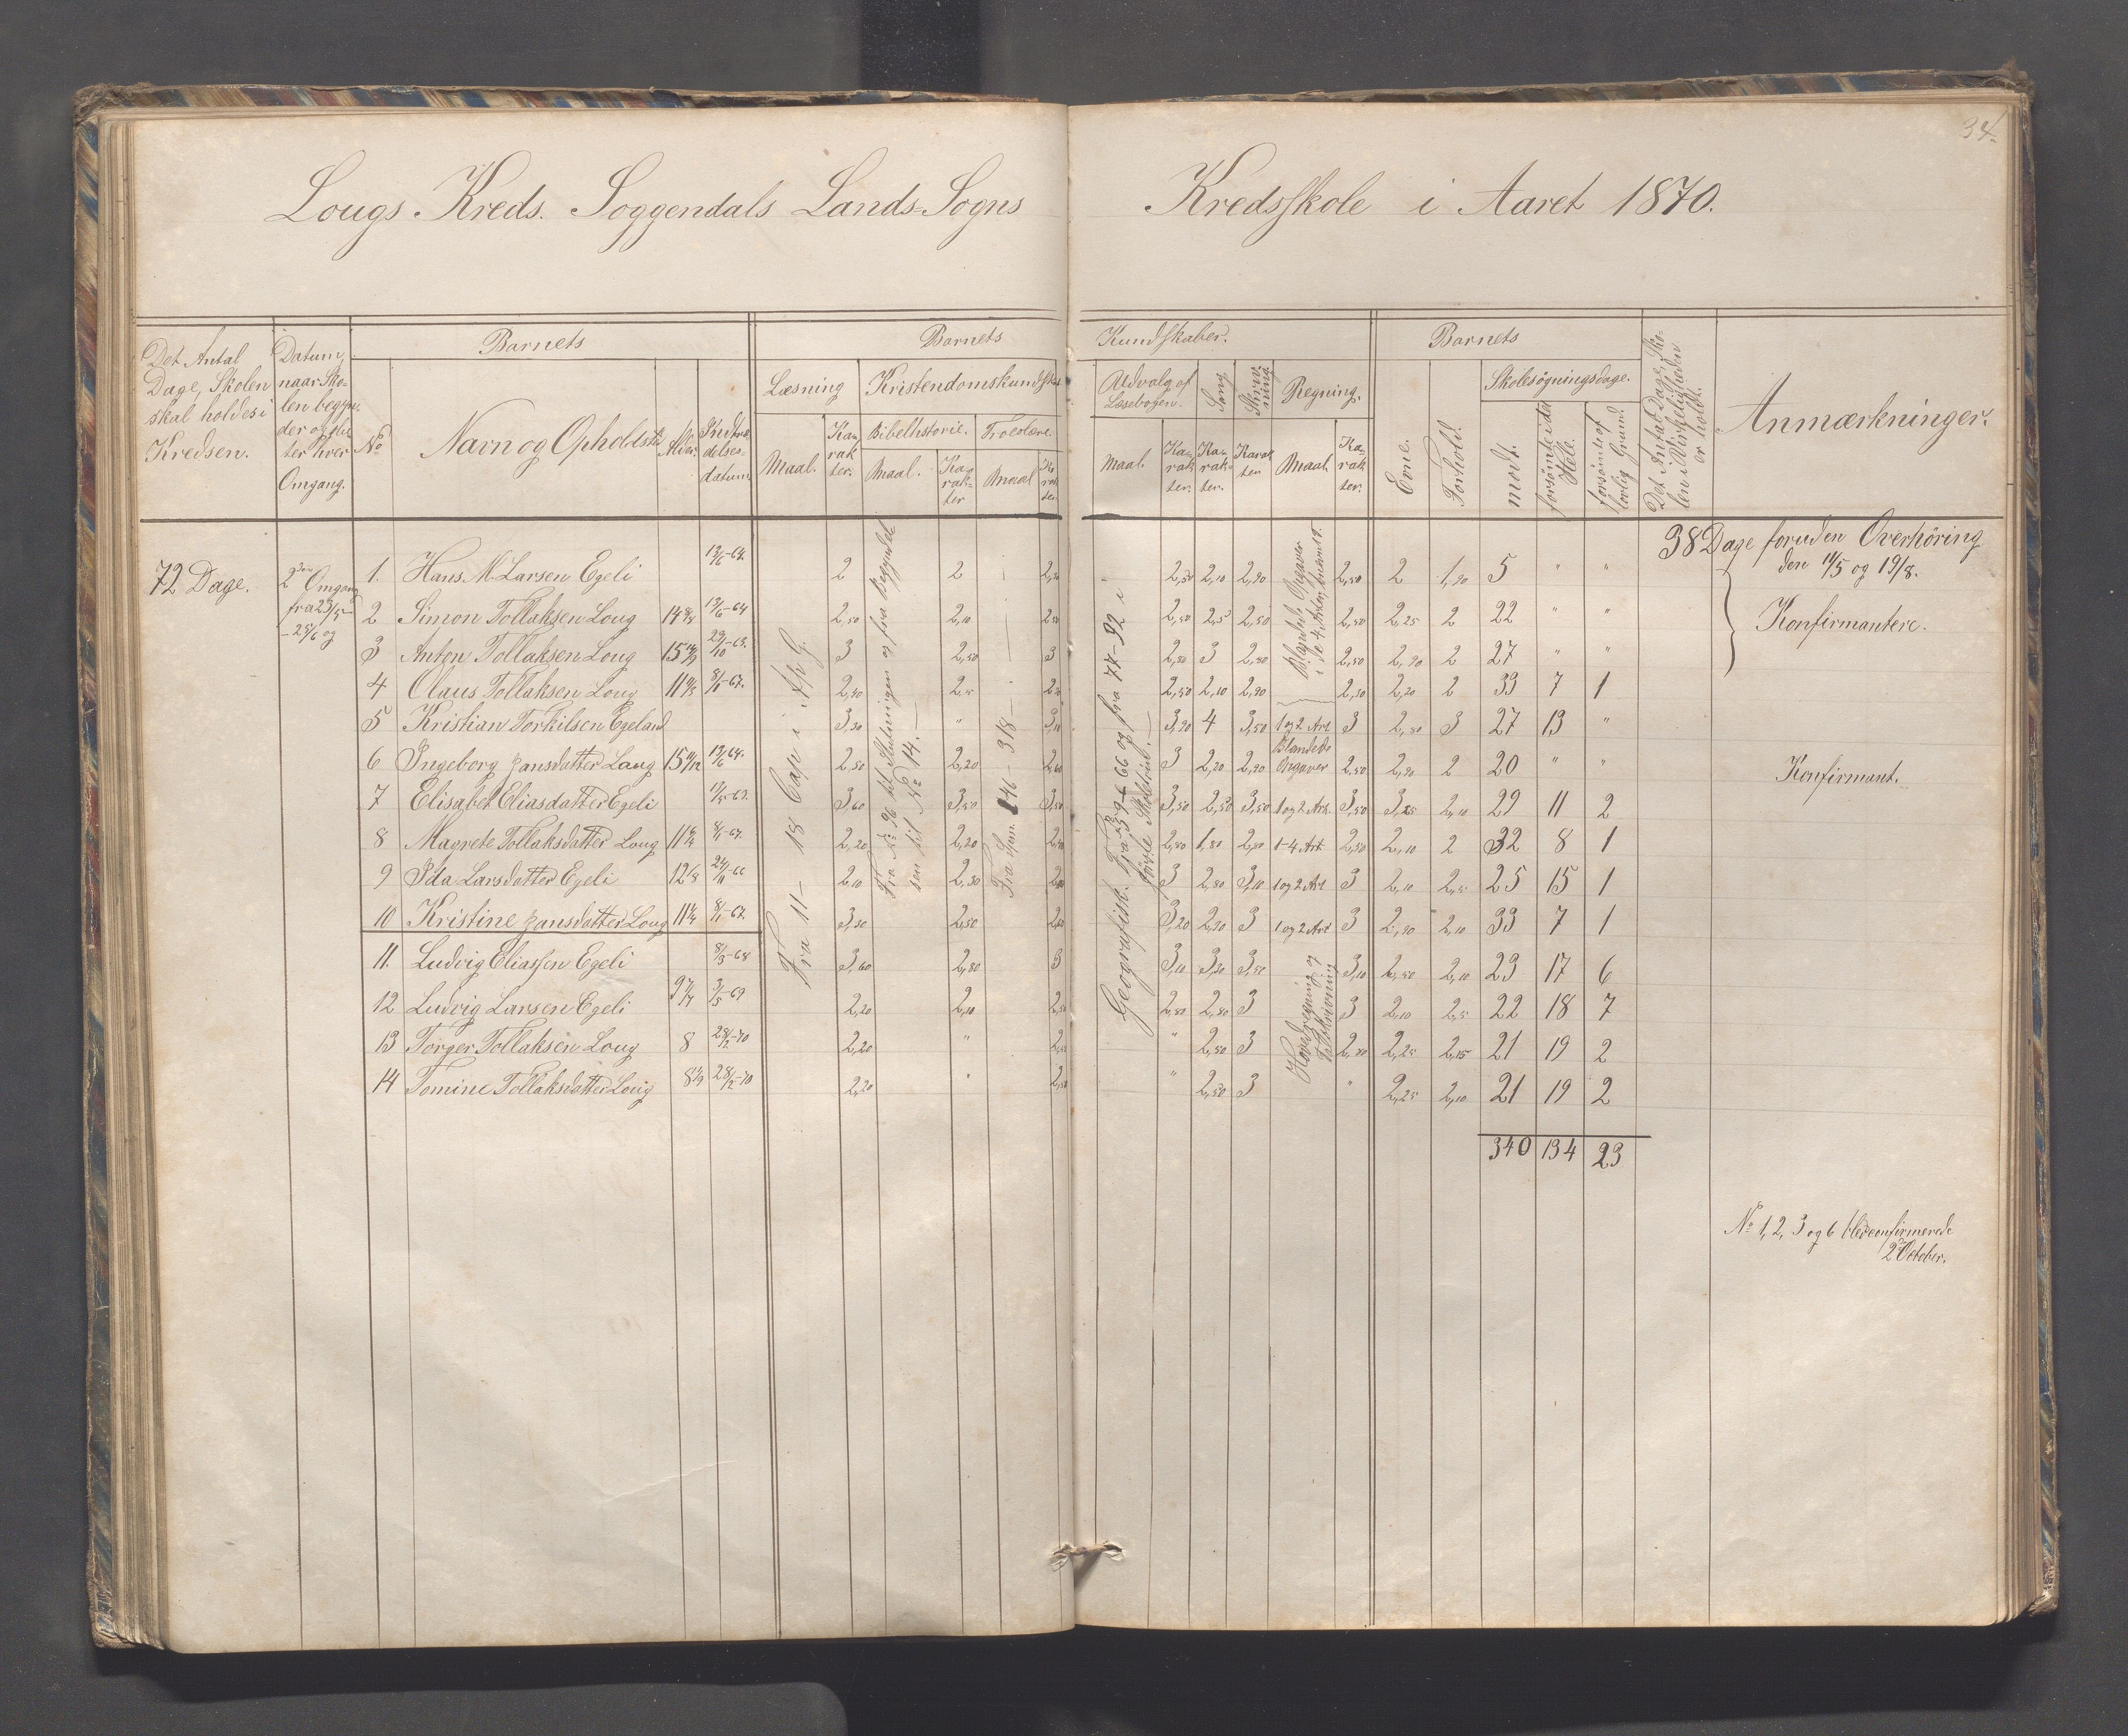 34.
Lougs Kreds. Soggendals Lands-Sogns Kredsskole i Aaret 1870.
Det Antal Dage, Skolen skal holdes i Kredsen.
Datum, naar Skolen begynder og slutter hver Omgang.
Barnets
No
Navn og Opholdsted
Alder.
Indtrædelsesdatum.
Barnets Kundskaber.
Læsning
Maal.
Karakter.
Kristendomskundskab
Bibelhistorie.
Maal.
Karakter
Troeslære.
Maal
Karakter
Udvalg af Læsebogen.
Maal.
Karakter.
Sang
Karakter.
Skrivning.
Karakter
Regning.
Maal.
Karakter.
Barnets
Evne.
Forhold.
Skolesøgningsdage.
mødt.
forsømte i det Hele.
forsømte af lovlig Grund.
Det Antal Dage, Skolen i Virkeligheden er holdt.
Anmærkninger.
72 Dage.
2den Omgang
fra 23/5
- 25/6 og
38 Dage foruden Overhöring
den 11/5 og 19/8.
1. Hans M. Larsen Egeli 13/6-64. 2 2 2,50 2,10 2,20 2,50 2 1,90 5 " "
2 Simon Tollaksen Loug 13/6-64 2,50 2,10 2,50 2,5 2,50 2,50 2,25 2 22 " "
Konfirmantere.
3 Anton Tollaksen Loug 29/10-63. 3 2,50 3 2,80 3 2,80 2,50 2,20 2 27 " "
4 Claus Tollaksen Loug 8/1-67. 2,20 2,5 2,50 2,10 2,20 2,50 2,20 2 33 7 1
5 Kristian Torkilsen Egeland 3,30 " 3,10 3,20 4 3,50 1 og 2 Art 3 2,50 3 27 13 "
6 Ingeborg Hansdatter Loug 13/6-64. 2,50 2,20 2,60 3 2,20 2,20 Blandede Opgaver 2,50 2,20 2 20 " "
Konfirmant.
7 Elisabet Eliasdatter Egeli 11/5-63. 3,60 3,50 3,50 3,50 2,50 3,50 1 og 2 Art. 3,50 3,25 2,10 29 11 2
8 Magrete Tollaksdatter Loug 8/1-67. 2,20 2,20 2,80 1,80 2,80 1-4 Art 2,50 2,10 2 32 8 1
9 Ida Larsdatter Egeli 24/11-66 2,10 2,30 3 2,80 3,10 1 og 2 Art 3 2,10 2,5 25 15 1
10 Kristine Hansdatter Loug 8/1-67. 3,30 2,50 3,20 2,20 3 1 og 2 Art 3 2,20 2,10 33 7 1
11. Ludvig Eliassen Egeli 8/3-68 3,60 2,80 3 3,10 3,20 3,50 3,10 2,50 2,10 23 17 6
12 Ludvig Larsen Egeli 3/5-69 2,20 2,10 2,50 2,80 2,80 3 3 2,10 2,5 22 18 7
13 Torger Tollaksen Loug 8 28/2-70 2,20 " " 2,50 3 2,80 2,25 2,15 21 19 2
14 Tomine Tollaksdatter Loug 28/2-70 2,20 " 2,50 " 2,50 3 " 2,25 2,10 21 19 2
340 134 23
Fra 11 - 18 Cap i Ap G.
Fra No 96 til Slutningen og fra Begyndelsen til No 14.
Fra Spm. 146 - 318 -
Geografisk. Fra 59-66 og fra 77-92 i første Skoletrin.
Blandede Opgaver
Hovedregning og Talskrivning
No 1, 2, 3 og 6 bleve confirmerede
2 October.